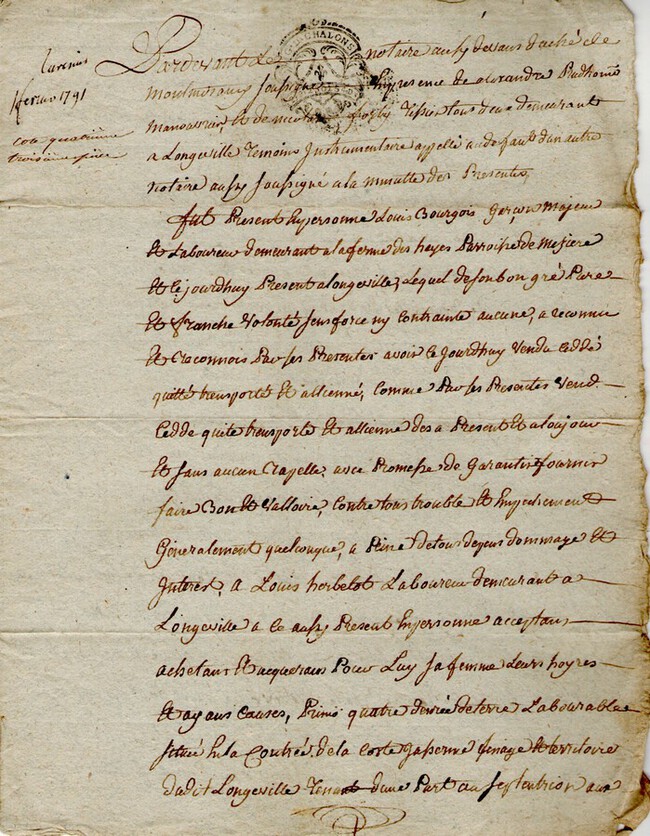 1 fevrier 1791
cote quatrieme
troisieme piece
GEN. CHALONS
Pardevant Le notaire aussy dessous
soussigné En presence de alexandre Prudhome
manouvrier, Et de tissier tous deux demeurant
a Longeville temoins Instrumentaire appellé au defaut dun autre
notaire aussy soussigné a la minutte des Presentes,
fut Present En personne Louis Bourgois garçon majeur
Et Laboureur demeurant a la ferme des hayes Parroisse de mesiere
Et ce jourdhuy Present a longeville, Lequel de son bon gré Pure
Et franche Volonté sens force ny contrainte aucune, a reconnu
Et reconnois Par ses Presentes avoir ce jourdhuy Vendu Ceddé
quitté transporté Et allienné, comme Par ses Presentes Vend
Cedde quite transporte Et allienne des a Present Et a toujour
Et sans aucun Rapelle, avec Promesse de garantir fournir
faire Bon Et Valloire, Contre tous trouble Et Empechement
Generalement quelconque, a Peine de tous depens dommage Et
Interest, a Louis herbelot Laboureur demeurant a
Longeville a ce aussy Present En personne acceptans
achetans Et acquerans Pour Luy sa femme Leurs hoyres
Et ayans Causes, Primo quatre denrée de terre Labourable
située En la Contrée de la Coste finage Et territoire
dudit Longeville Tenant dune Part au septentrion aux